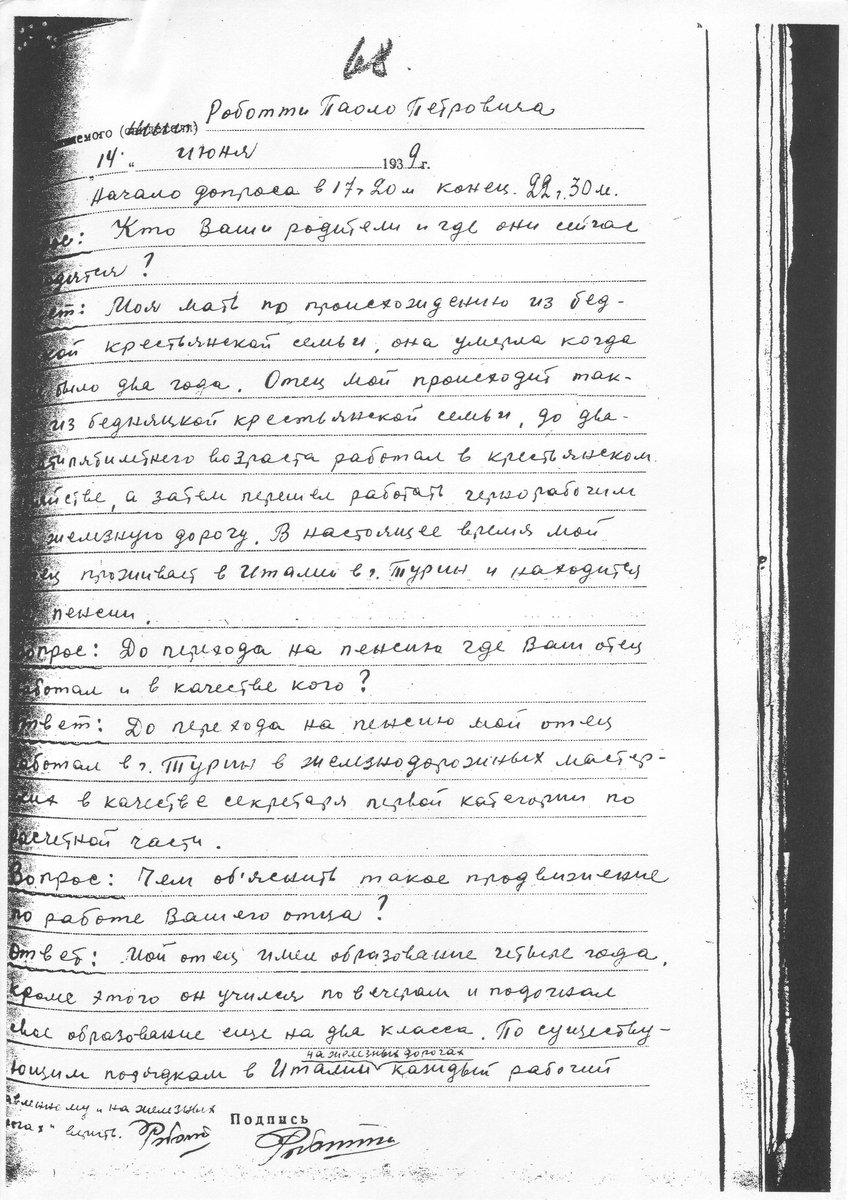 68.
Роботти Паоло Петровича
емого
"14" июня 1939 г.
Начало допроса в 17ч 20м конец. 22ч. 30м.
Кто Ваши родители и где они сейчас
дятся?
ет: Моя мать по происхождению из бед-
кой крестьянской семьи, она умерла когда
было два года. Отец мой происходит так-
из бедняцкой крестьянской семьи, до два-
типятилетнего возраста работал в крестьянском
яйстве, а затем перешел работать чернорабочим
железную дорогу. В настоящее время мой
ец проживает в Италии в г. Турин и находится
пенсии.
опрос: До перехода на пенсию где Ваш отец
аботал и в качестве кого?
твет: До перехода на пенсию мой отец
аботал в г. Турин в железнодорожных мастер-
ких в качестве секретаря первой категории по
расчетной части.
Вопрос: Чем об'яснить такое продвижение
по работе Вашего отца?
Ответ: Мой отец имел образование четыре года,
кроме этого он учился по вечерам и подогнал
свое образование еще на два класса. По существу-
на железных дорогах
ющим порядкам в Италии каждый рабочий
авленному "на железных
рогах" верить.
Подпись